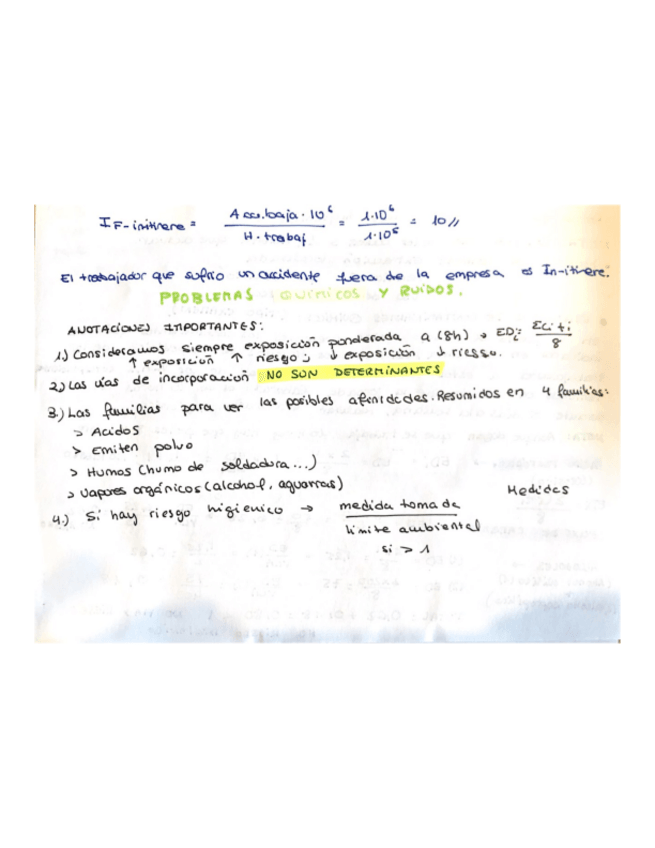 I F-initinere = Acc.baja · 10⁶ / H. trabaj = 1·10⁶ / 1·10⁵ = 10 //
El trabajador que sufrio un accidente fuera de la empresa es In-itinere.
PROBLEMAS QUÍMICOS Y RUIDOS.
ANOTACIONES IMPORTANTES:
1.) Consideramos siempre exposición ponderada a (8h) → EDi = Σci·ti / 8
↑ exposición ↑ riesgo ; ↓ exposición ↓ riesgo.
2.) Las vías de incorporación NO SON DETERMINANTES
3.) Las familias para ver las posibles afinidades. Resumidos en 4 familias:
> Acidos
> Emiten polvo
> Humos (humo de soldadura...)
> Vapores orgánicos (alcohol, aguarras)
Medidas
4.) Si hay riesgo higienico → medida tomada / límite ambiental
si > 1